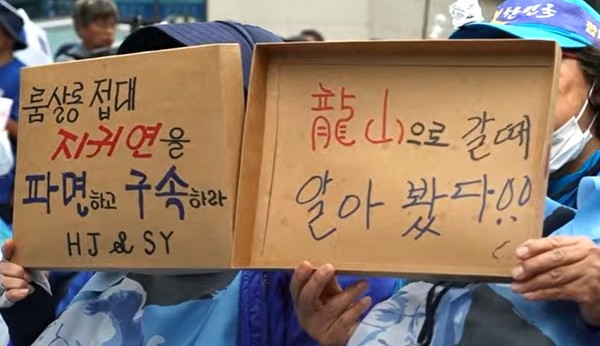 룸살롱 접대
지귀연을
파면하고 구속하라
HJ & SY
龍山으로 갈때
알아 봤다!!